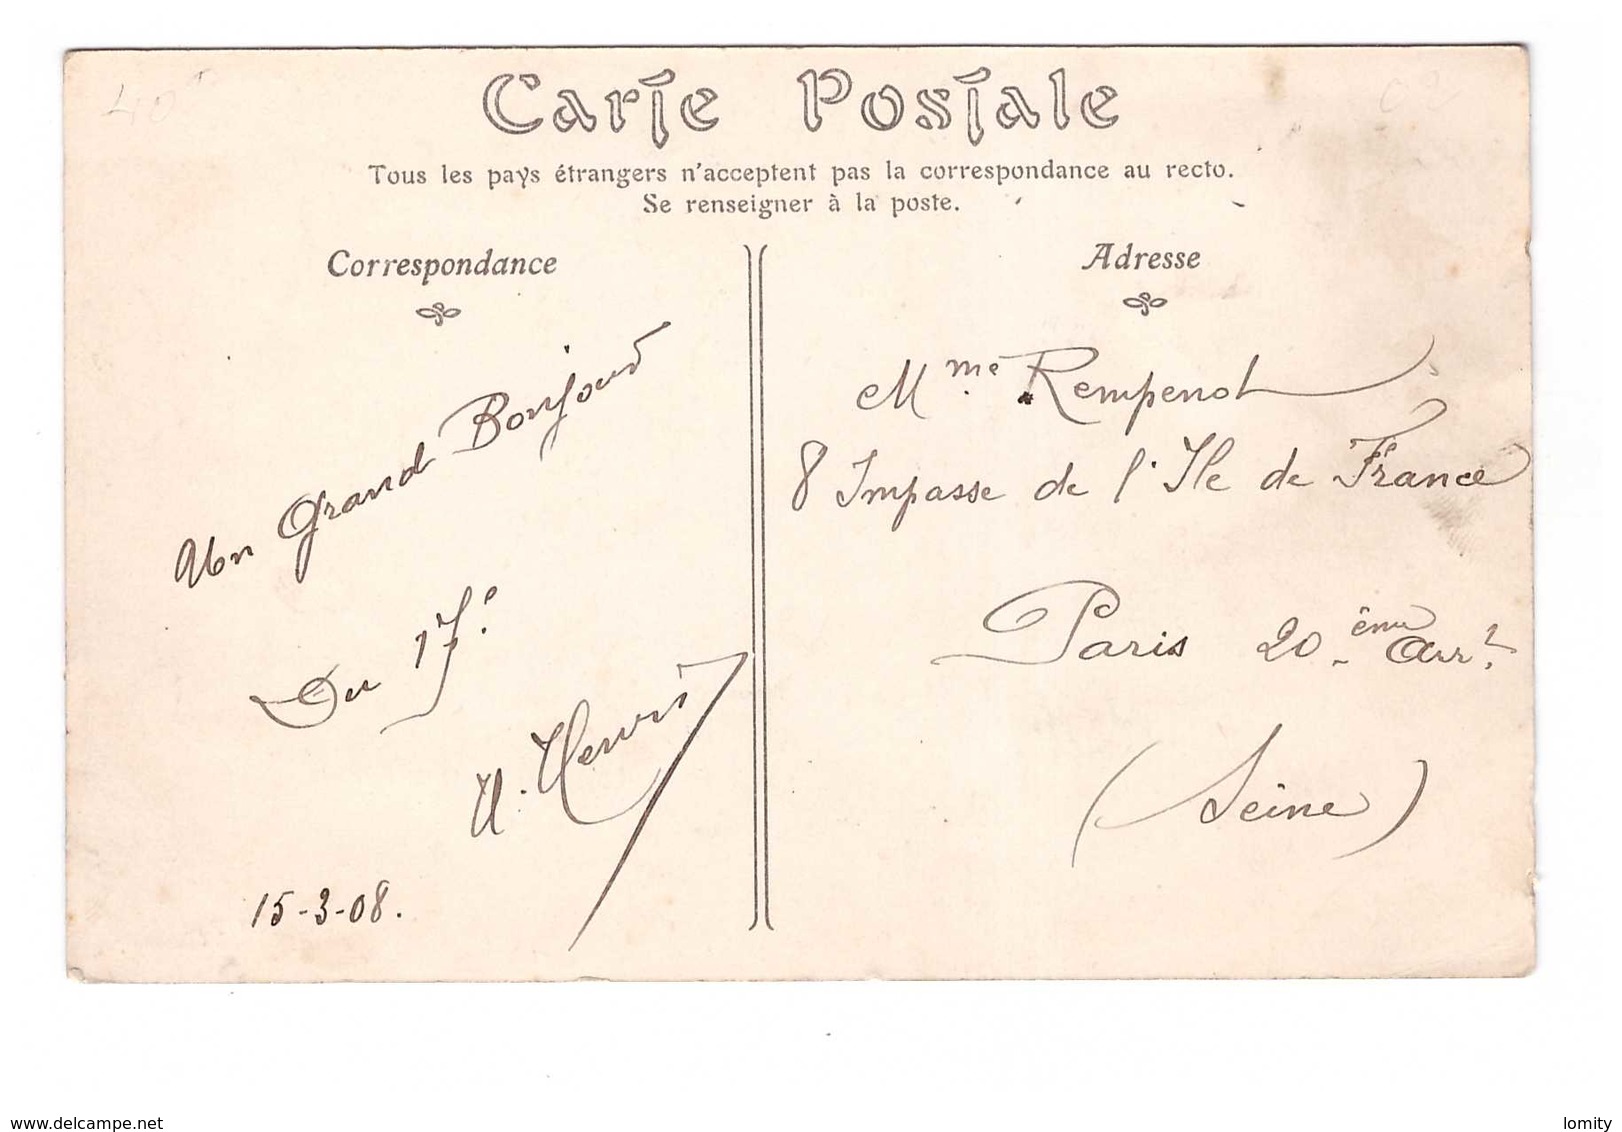 Carte Postale
Tous les pays étrangers n'acceptent pas la correspondance au recto.
Se renseigner à la poste.
Correspondance
Un Grand Bonjour
Du 17.e
H. Henri
15-3-08.
Adresse
Mme Rempenot
8 Impasse de l'Ile de France
Paris 20ème Arrt
(Seine)
www.delcampe.net
lomity